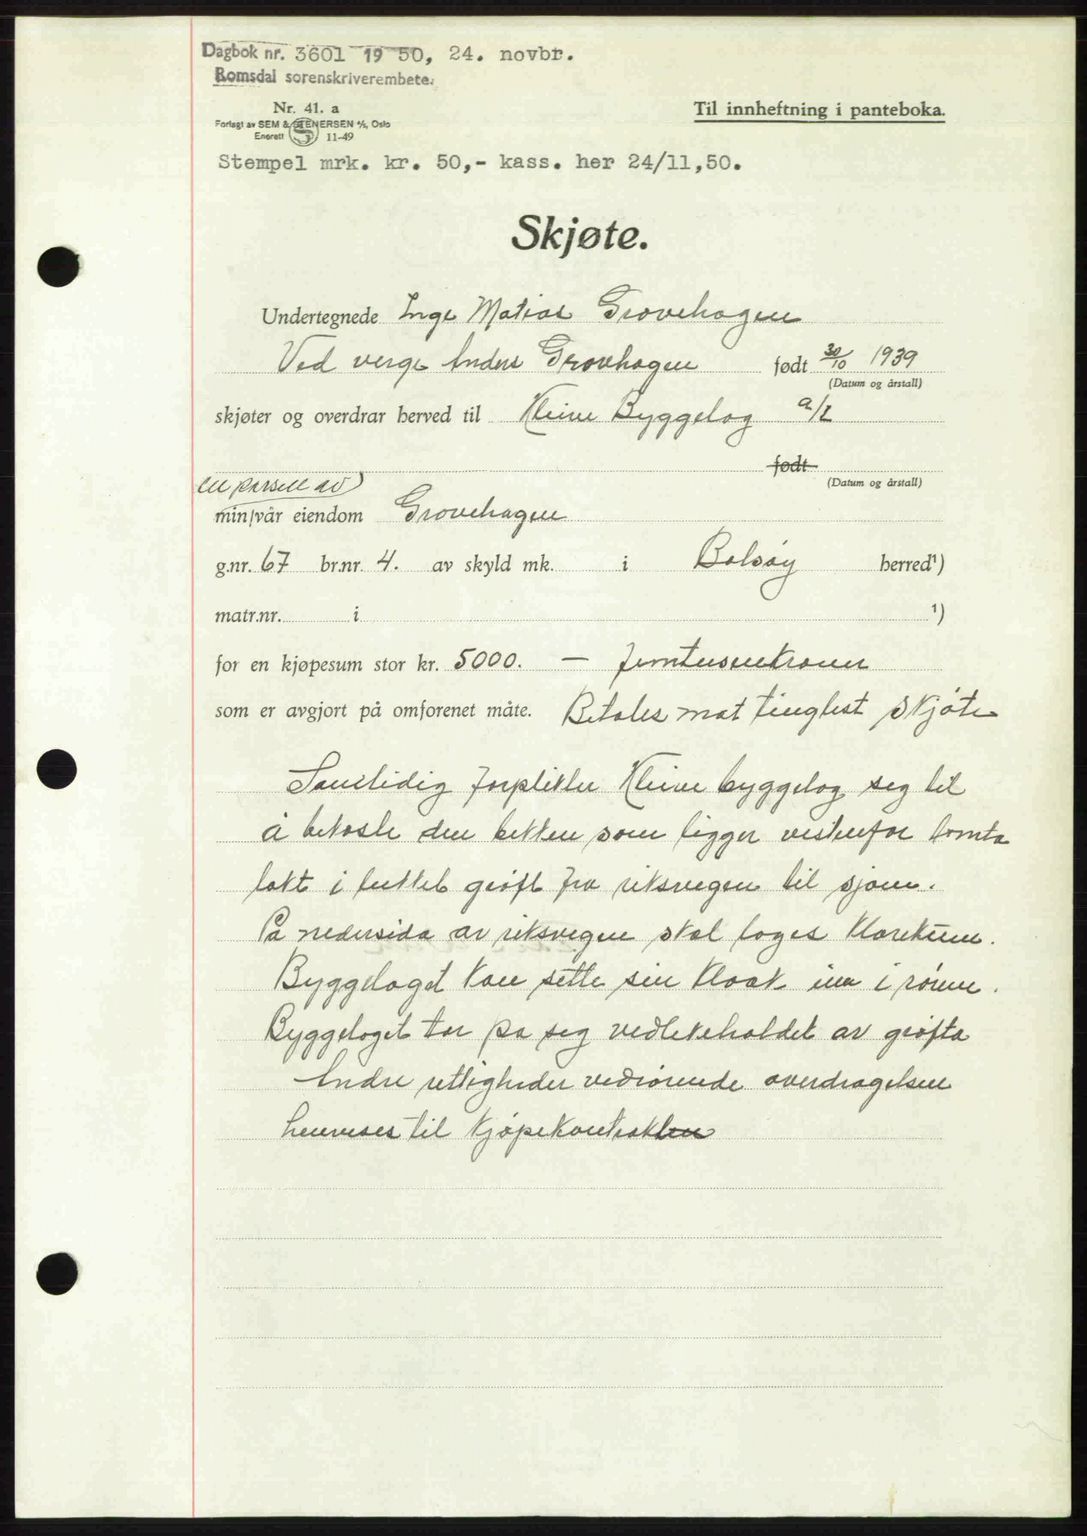 Dagbok nr. 3601 1950, 24. novbr.
Romsdal sorenskriverembete.
Nr. 41. a
Forlagt av SEM & STENERSEN A/S, Oslo
Enerett 11-49
Til innheftning i panteboka.
Stempel mrk. kr. 50,- kass. her 24/11,50.
Skjøte.
Undertegnede Inge Matias Grovehagen
Ved verge Anders Grovhagen født 30/10 1939
(Datum og årstall)
skjøter og overdrar herved til Kleive Byggelag a/l
født
(Datum og årstall)
en parsell av
min/vår eiendom Grovehagen
g.nr. 67 br.nr. 4. av skyld mk. i Bolsøy herred¹)
matr.nr. i ¹)
for en kjøpesum stor kr. 5000. — femtusenkroner
som er avgjort på omforenet måte. Betales mot tinglest skjøte
Samtidig forplikter Kleive byggelag seg til
å bekoste den bekken som ligger vestenfor tomta
lakt i lukket grøft fra riksvegen til sjøen.
På nedersida av riksvegen skal lages klarekum.
Byggelaget kan sette sin kloak inn i rørene.
Byggelaget tar på seg vedlikeholdet av grøfta
Andre rettigheder vedrørende overdragelsen
henvises til kjøpekontrakten